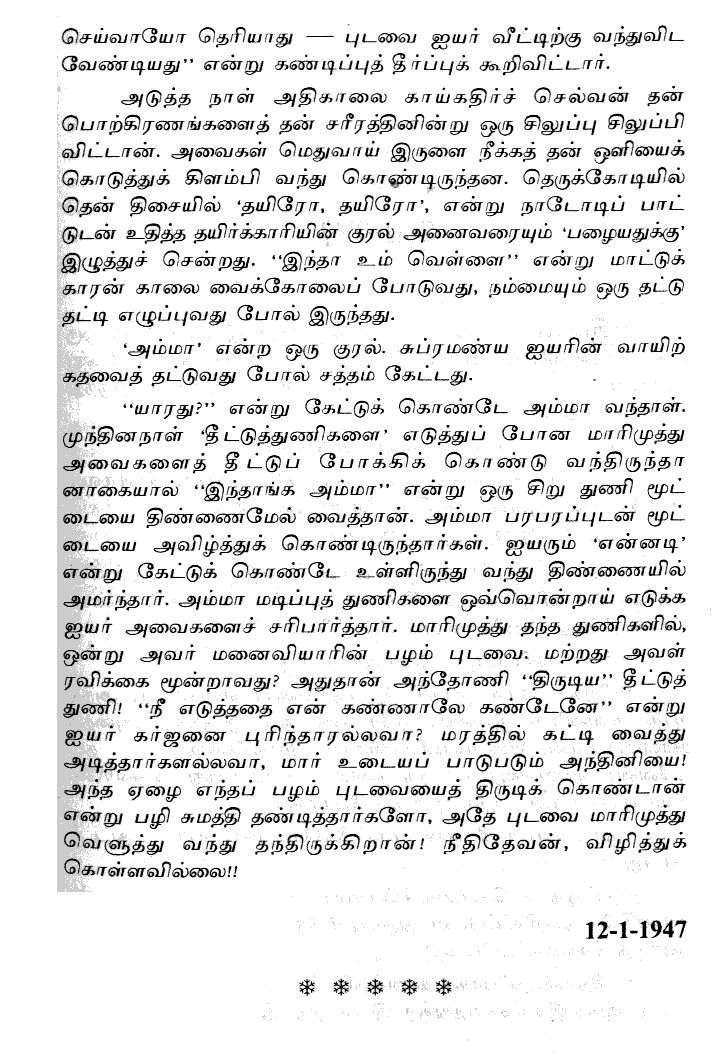 செய்வாயோ தெரியாது — புடவை ஐயர் வீட்டிற்கு வந்துவிட
வேண்டியது’’ என்று கண்டிப்புத் தீர்ப்புக் கூறிவிட்டார்.
அடுத்த நாள் அதிகாலை காய்கதிர்ச் செல்வன் தன்
பொற்கிரணங்களைத் தன் சரீரத்தினின்று ஒரு சிலுப்பு சிலுப்பி
விட்டான். அவைகள் மெதுவாய் இருளை நீக்கத் தன் ஒளியைக்
கொடுத்துக் கிளம்பி வந்து கொண்டிருந்தன. தெருக்கோடியில்
தென் திசையில் ‘தயிரோ, தயிரோ’, என்று நாடோடிப் பாட்
டுடன் உதித்த தயிர்க்காரியின் குரல் அனைவரையும் ‘பழையதுக்கு’
இழுத்துச் சென்றது. ‘‘இந்தா உம் வெள்ளை’’ என்று மாட்டுக்
காரன் காலை வைக்கோலைப் போடுவது, நம்மையும் ஒரு தட்டு
தட்டி எழுப்புவது போல் இருந்தது.
‘அம்மா’ என்ற ஒரு குரல். சுப்ரமண்ய ஐயரின் வாயிற்
கதவைத் தட்டுவது போல் சத்தம் கேட்டது.
‘‘யாரது?’’ என்று கேட்டுக் கொண்டே அம்மா வந்தாள்.
முந்தினநாள் ‘தீட்டுத்துணிகளை’ எடுத்துப் போன மாரிமுத்து
அவைகளைத் தீட்டுப் போக்கிக் கொண்டு வந்திருந்தா
னாகையால் ‘‘இந்தாங்க அம்மா’’ என்று ஒரு சிறு துணி மூட்
டையை திண்ணைமேல் வைத்தான். அம்மா பரபரப்புடன் மூட்
டையை அவிழ்த்துக் கொண்டிருந்தார்கள். ஐயரும் ‘என்னடி’
என்று கேட்டுக் கொண்டே உள்ளிருந்து வந்து திண்ணையில்
அமர்ந்தார். அம்மா மடிப்புத் துணிகளை ஒவ்வொன்றாய் எடுக்க
ஐயர் அவைகளைச் சரிபார்த்தார். மாரிமுத்து தந்த துணிகளில்,
ஒன்று அவர் மனைவியாரின் பழம் புடவை. மற்றது அவள்
ரவிக்கை மூன்றாவது? அதுதான் அந்தோணி ‘‘திருடிய’’ தீட்டுத்
துணி! ‘‘நீ எடுத்ததை என் கண்ணாலே கண்டேனே’’ என்று
ஐயர் கர்ஜனை புரிந்தாரல்லவா? மரத்தில் கட்டி வைத்து
அடித்தார்களல்லவா, மார் உடையப் பாடுபடும் அந்தினியை!
அந்த ஏழை எந்தப் பழம் புடவையைத் திருடிக் கொணடான்
என்று பழி சுமத்தி தண்டித்தார்களோ, அதே புடவை மாரிமுத்து
வெளுத்து வந்து தந்திருக்கிறான்! நீதிதேவன், விழித்துக்
கொள்ளவில்லை!!
12-1-1947